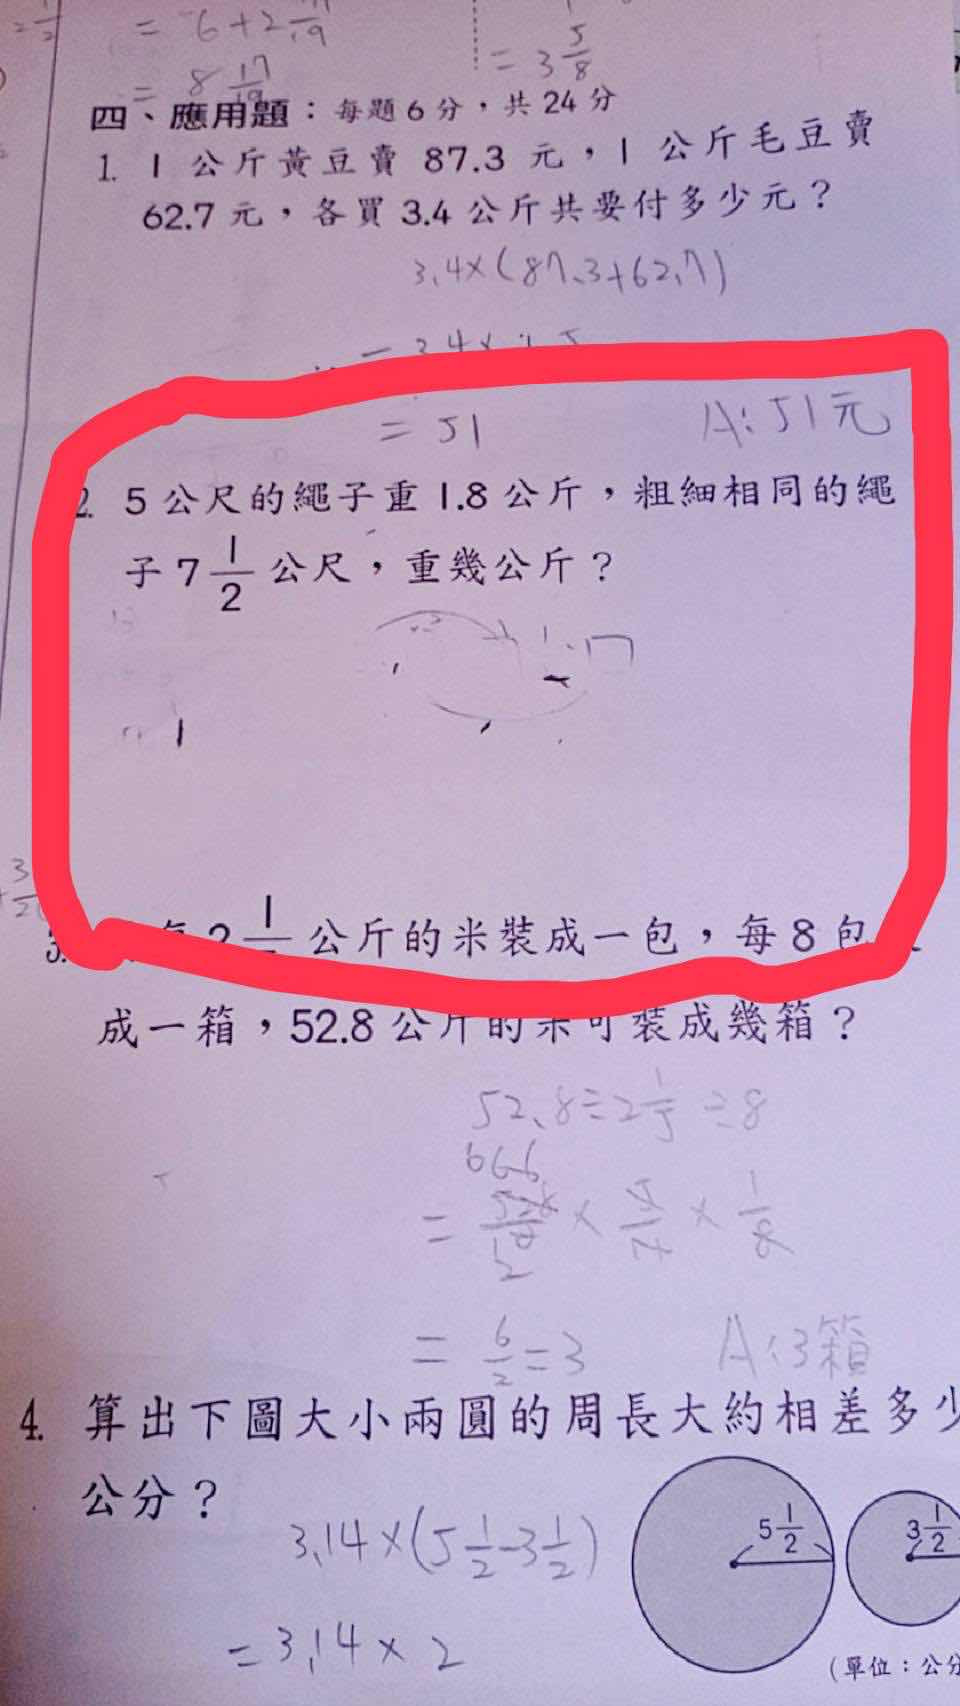 = 6 + 2
= 8 17/19
= 3 5/8
四、應用題：每題6分，共24分
1. 1公斤黃豆賣 87.3 元，1公斤毛豆賣
62.7元，各買3.4公斤共要付多少元？
3.4×(87.3+62.7)
= 51 A:51元
2. 5公尺的繩子重1.8公斤，粗細相同的繩
子7 1/2 公尺，重幾公斤？
公斤的米裝成一包，每8包
成一箱，52.8公斤的米可裝成幾箱？
52.8÷2 1/5 ÷8
= × 5/ × 1/8
= 6/2 = 3 A:3箱
4. 算出下圖大小兩圓的周長大約相差多少
公分？
5 1/2
3 1/2
3.14×(5 1/2-3 1/2)
= 3.14 × 2
(單位：公分